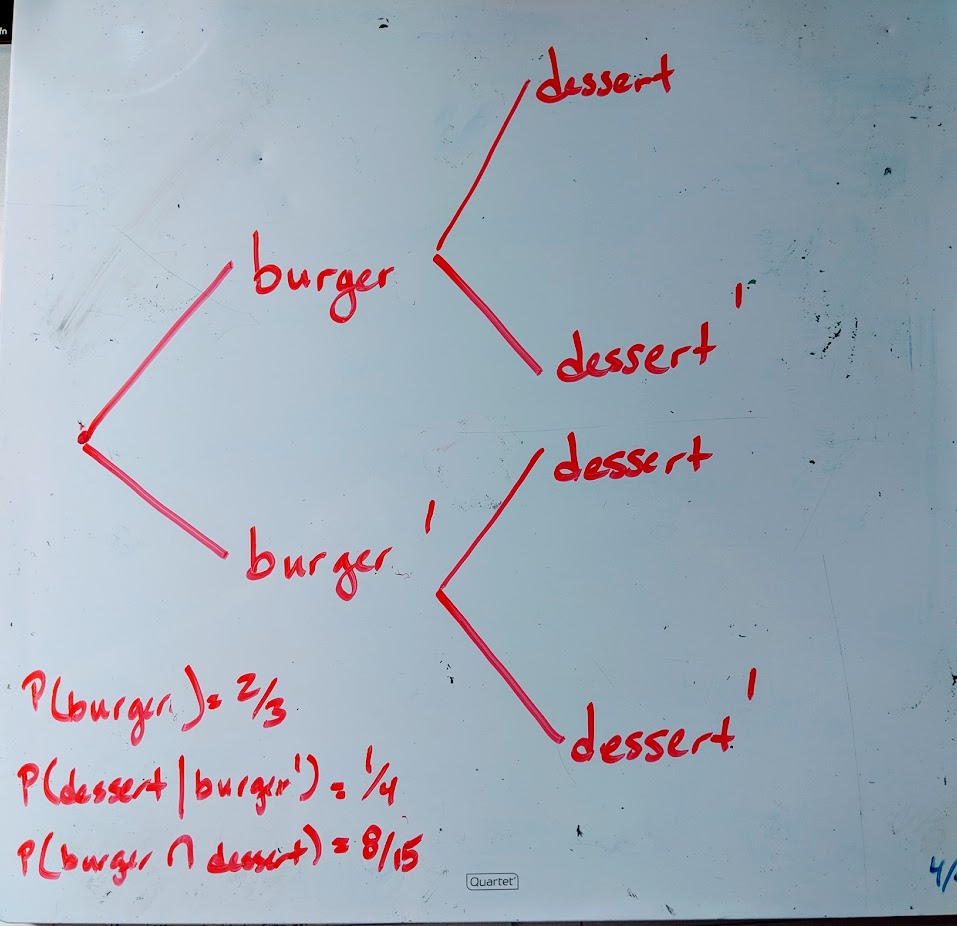 dessert
burger
dessert'
dessert
burger'
dessert'
P(burger) = 2/3
P(dessert | burger') = 1/4
P(burger ∩ dessert) = 8/15
Quartet